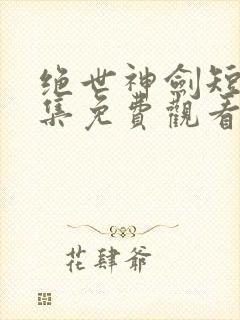 绝世神劍短
集免費觀看
花肆爺